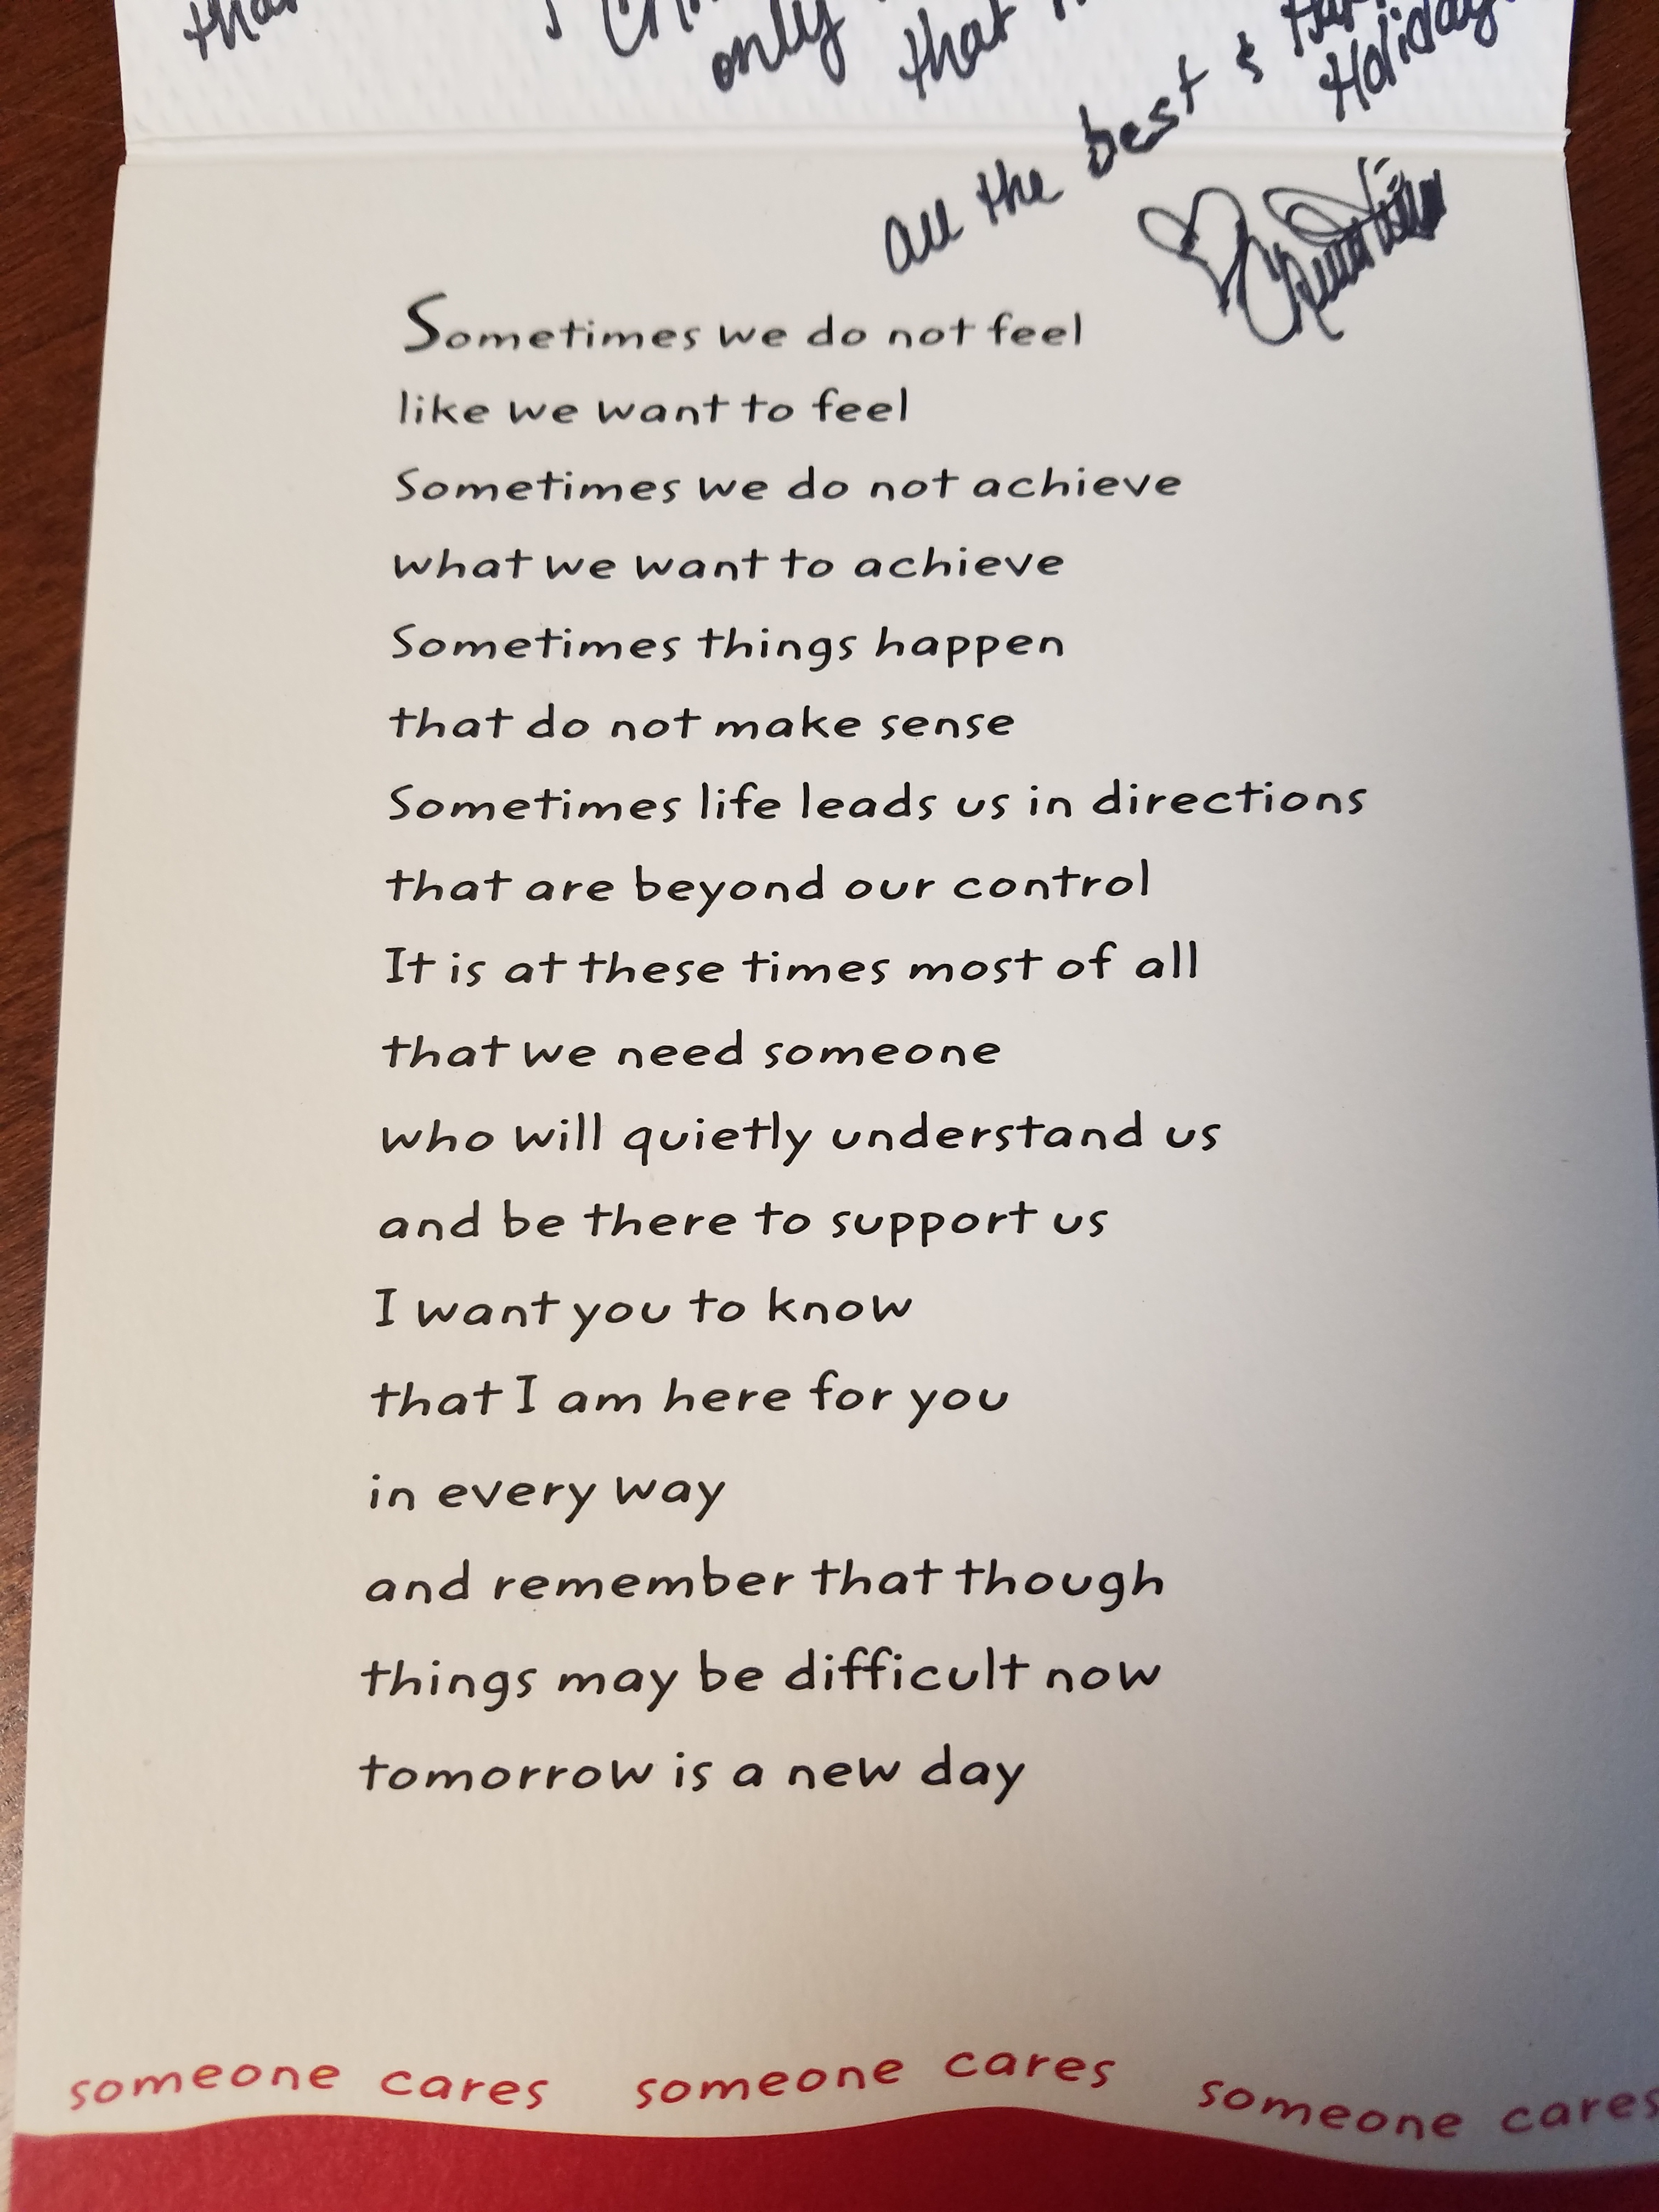 only
that
all the best &
Holiday
Sometimes we do not feel
like we want to feel
Sometimes we do not achieve
what we want to achieve
Sometimes things happen
that do not make sense
Sometimes life leads us in directions
that are beyond our control
It is at these times most of all
that we need someone
who will quietly understand us
and be there to support us
I want you to know
that I am here for you
in every way
and remember that though
things may be difficult now
tomorrow is a new day
someone cares someone cares someone cares